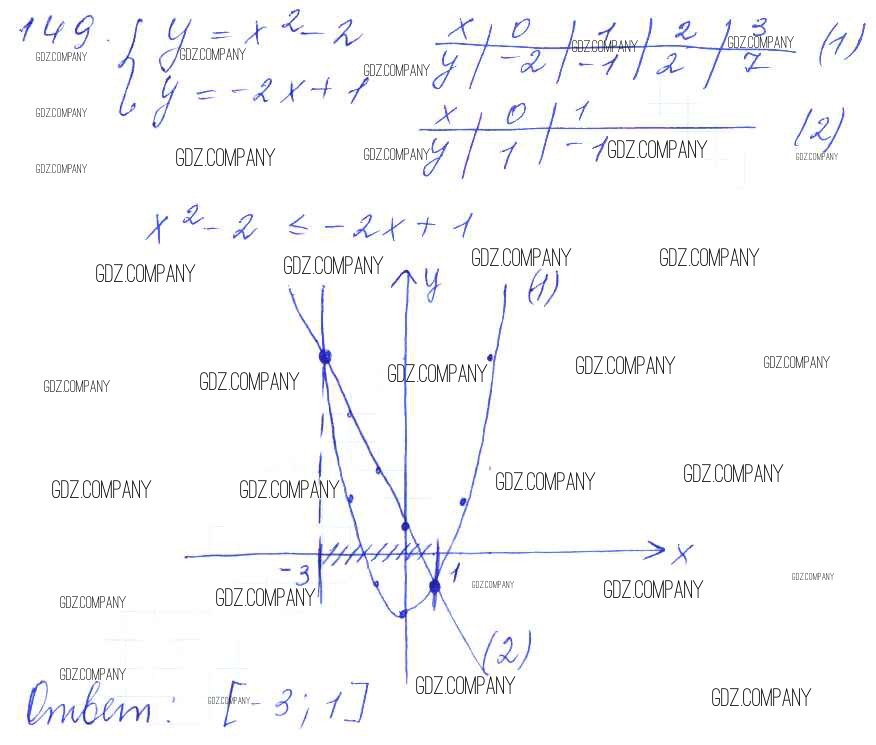 149. { y = x² - 2
y = -2x + 1
x | 0 | 1 | 2 | 3
y | -2 | -1 | 2 | 7 (1)
x | 0 | 1
y | 1 | -1 (2)
x² - 2 ≤ -2x + 1
y (1)
-3 1 x
(2)
Ответ: [-3; 1]
GDZ.COMPANY GDZ.COMPANY GDZ.COMPANY GDZ.COMPANY
GDZ.COMPANY
GDZ.COMPANY
GDZ.COMPANY GDZ.COMPANY GDZ.COMPANY GDZ.COMPANY GDZ.COMPANY
GDZ.COMPANY GDZ.COMPANY GDZ.COMPANY GDZ.COMPANY
GDZ.COMPANY GDZ.COMPANY GDZ.COMPANY GDZ.COMPANY GDZ.COMPANY
GDZ.COMPANY GDZ.COMPANY GDZ.COMPANY GDZ.COMPANY
GDZ.COMPANY GDZ.COMPANY GDZ.COMPANY GDZ.COMPANY GDZ.COMPANY
GDZ.COMPANY GDZ.COMPANY GDZ.COMPANY GDZ.COMPANY